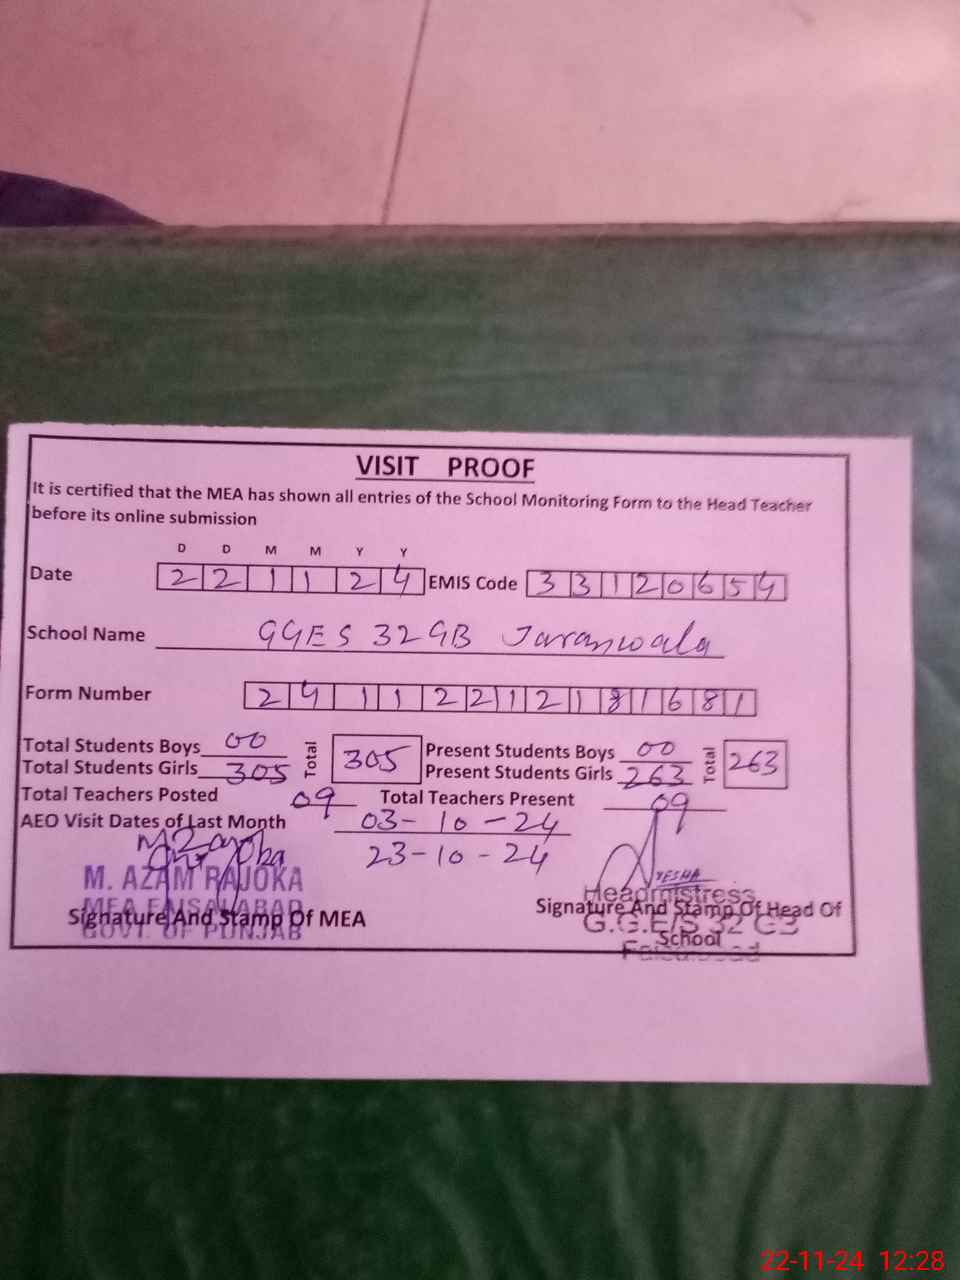 VISIT PROOF
It is certified that the MEA has shown all entries of the School Monitoring Form to the Head Teacher
before its online submission
D D M M Y Y
Date 2 2 1 1 2 4 EMIS Code 3 3 1 2 0 6 5 4
School Name GGES 32GB Jaranwala
Form Number 2 4 1 1 2 2 1 2 1 8 1 6 8 1
Total Students Boys 00 Total 305 Present Students Boys 00 Total 263
Total Students Girls 305 Present Students Girls 263
Total Teachers Posted 09 Total Teachers Present 09
AEO Visit Dates of Last Month 03-10-24
23-10-24
M. AZAM RAJOKA
MEA FAISALABAD
GOVT. OF PUNJAB
Signature And Stamp Of MEA
AYESHA
Headmistress
G.G.E/S 32 GB
Faisalabad
Signature And Stamp Of Head Of
School
22-11-24 12:28